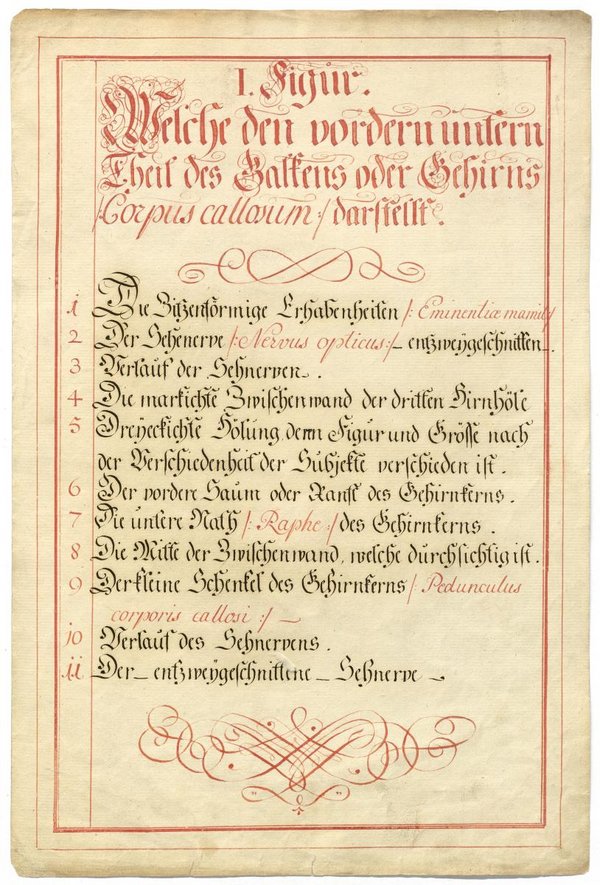 I. Figur.
Welche den vordern untern
Theil des Balkens oder Gehirns
/:Corpus callosum:/ darstellt.
1 Die Zitzenförmige Erhabenheiten /: Eminentiæ mamill
2 Der Sehenerve /: Nervus opticus:/ entzweygeschnitten
3 Verlauf der Sehnerven.
4 Die markichte Zwischenwand der dritten Hirnhöle
5 Dreyeckichte Hölung deren Figur und Grösse nach
der Verschiedenheit der Subjekte verschieden ist.
6 Der vordere Saum oder Ranft des Gehirnkerns.
7 Die untere Nath /: Raphe :/ des Gehirnkerns.
8 Die Mitte der Zwischenwand, welche durchsichtig ist.
9 Der kleine Schenkel des Gehirnkerns /: Pedunculus
corporis callosi :/
10 Verlauf des Sehnervens.
11 Der entzweygeschnittene Sehnerve